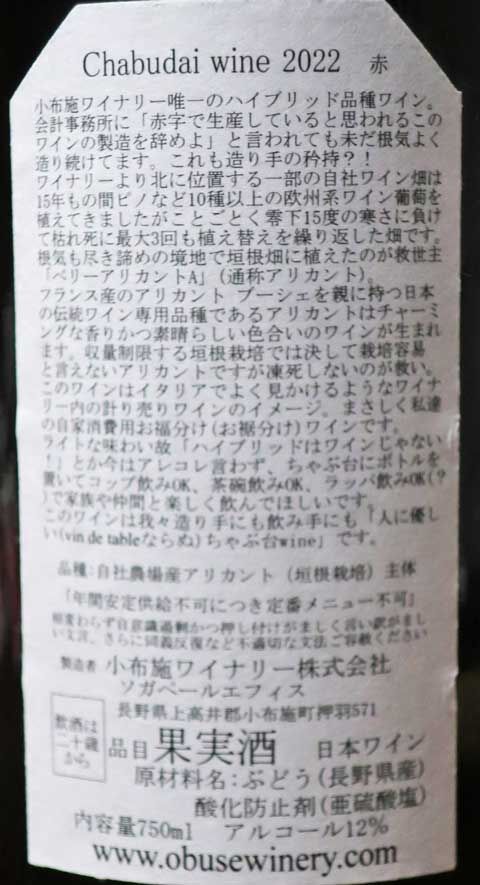 Chabudai wine 2022 赤
小布施ワイナリー唯一のハイブリッド品種ワイン。
会計事務所に「赤字で生産していると思われるこの
ワインの製造を辞めよ」と言われても未だ根気よく
造り続けてます。これも造り手の矜持?!
ワイナリーより北に位置する一部の自社ワイン畑は
15年もの間ピノなど10種以上の欧州系ワイン葡萄を
植えてきましたがことごとく零下15度の寒さに負け
て枯れ死に最大3回も植え替えを繰り返した畑です。
根気も尽き諦めの境地で垣根畑に植えたのが救世主
「ベリーアリカントA」(通称アリカント)。
フランス産のアリカント ブーシェを親に持つ日本
の伝統ワイン専用品種であるアリカントはチャーミ
ングな香りかつ素晴らしい色合いのワインが生まれ
ます。収量制限する垣根栽培では決して栽培容易
と言えないアリカントですが凍死しないのが救い。
このワインはイタリアでよく見かけるようなワイナ
リー内の計り売りワインのイメージ。まさしく私達
の自家消費用お福分け(お裾分け)ワインです。
ライトな味わい故「ハイブリッドはワインじゃない
!」とか今はアレコレ言わず、ちゃぶ台にボトルを
置いてコップ飲みOK、茶碗飲みOK、ラッパ飲みOK(?
)で家族や仲間と楽しく飲んでほしいです。
このワインは我々造り手にも飲み手にも「人に優し
い(vin de tableならぬ)ちゃぶ台wine」です。
品種:自社農場産アリカント(垣根栽培)主体
「年間安定供給不可につき定番メニュー不可」
相変わらず自意識過剰かつ押し付けがましく言い訳がまし
い文言、さらに同義反復など不適切な文法ご容赦ください
製造者 小布施ワイナリー株式会社
ソガペールエフィス
長野県上高井郡小布施町押羽571
飲酒は
二十歳
から
品目 果実酒 日本ワイン
原材料名:ぶどう(長野県産)
酸化防止剤(亜硫酸塩)
内容量750ml アルコール12%
www.obusewinery.com